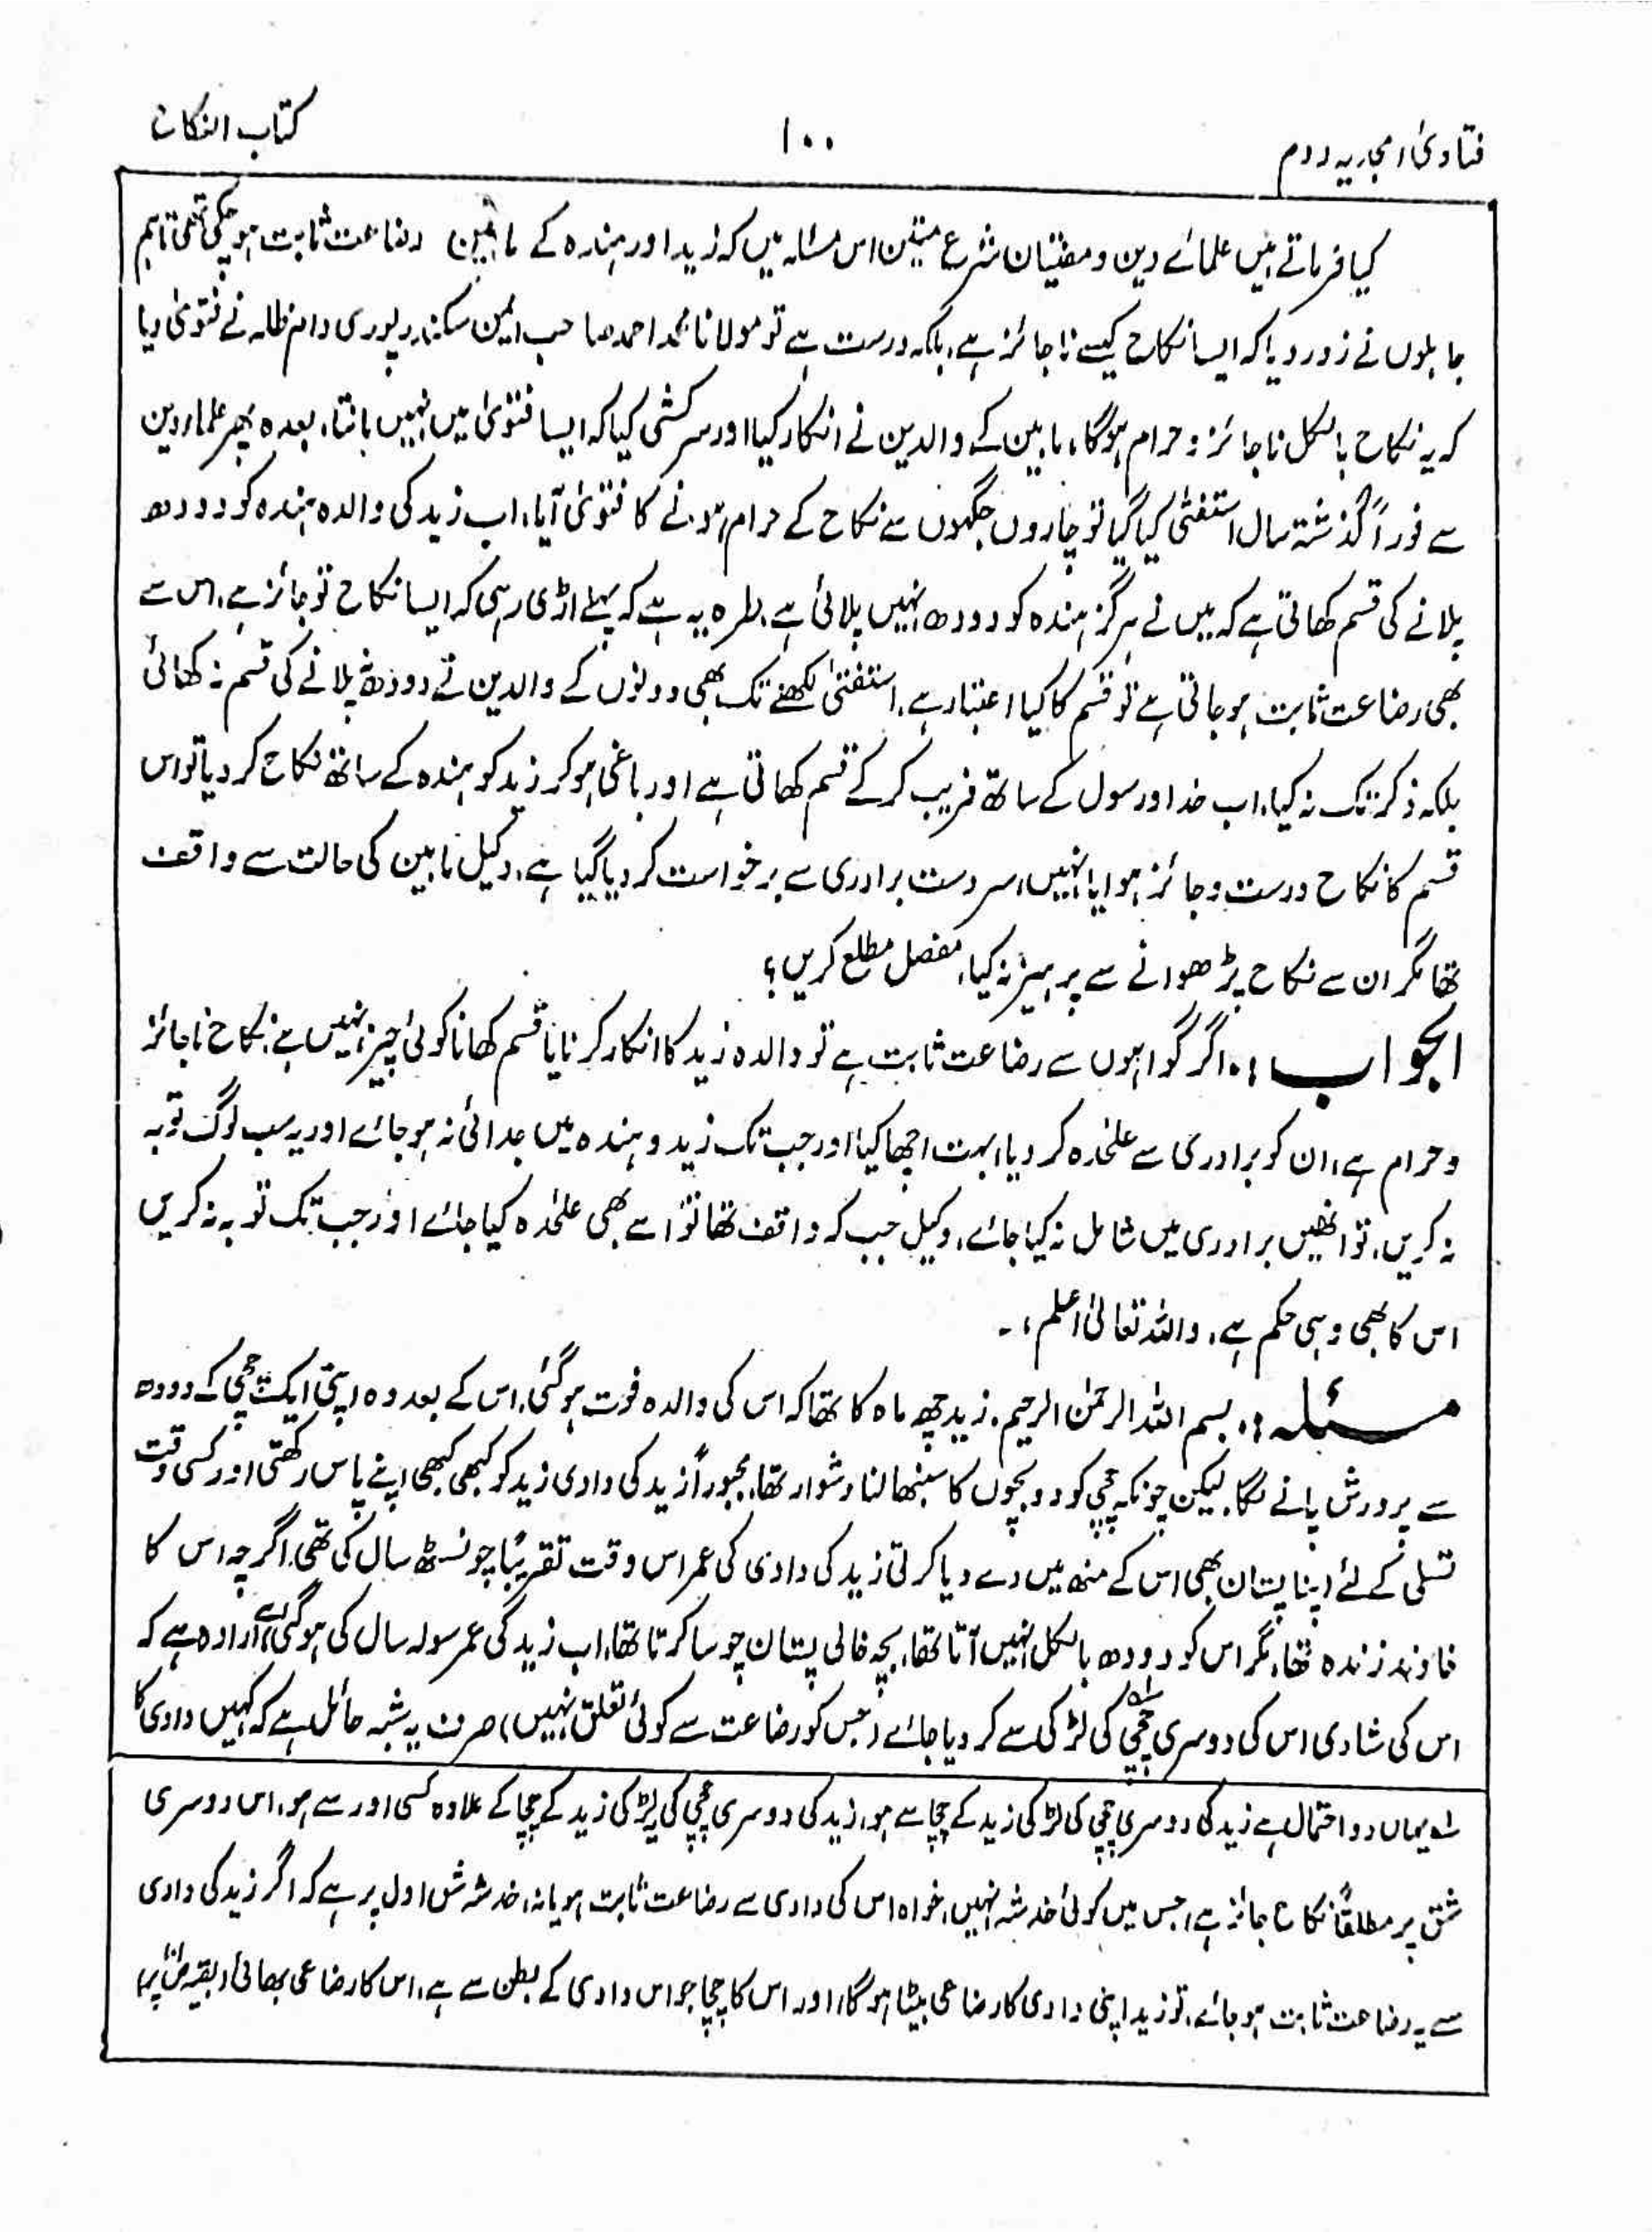 فتاویٰ امجدیہ دوم
۱۰۰
کتاب النکاح
کیا فرماتے ہیں علمائے دین و مفتیان شرع متین اس مسئلہ میں کہ زید اور ہندہ کے مابین رضاعت ثابت ہوچکی تھی تاہم
جاہلوں نے زور دیا کہ ایسا نکاح کیسے ناجائز ہے، بلکہ درست ہے تو مولانا محمد احمد صاحب ایمن سکندرپوری دام ظلہ نے فتویٰ دیا
کہ یہ نکاح بالکل ناجائز و حرام ہوگا، مابین کے والدین نے انکار کیا اور سرکشی کیا کہ ایسا فتویٰ میں نہیں مانتا، بعدہ پھر علماء دین
سے فوراً گذشتہ سال استفتیٰ کیا گیا تو چاروں جگہوں سے نکاح کے حرام ہونے کا فتویٰ آیا، اب زید کی والدہ ہندہ کو دودھ
پلانے کی قسم کھاتی ہے کہ میں نے ہرگز ہندہ کو دودھ نہیں پلائی ہے، طرہ یہ ہے کہ پہلے اڑی رہی کہ ایسا نکاح تو جائز ہے، اس سے
بھی رضاعت ثابت ہوجاتی ہے تو قسم کا کیا اعتبار ہے، استفتیٰ لکھنے تک بھی دونوں کے والدین نے دودھ پلانے کی قسم نہ کھائی
بلکہ ذکر تک نہ کیا، اب خدا و رسول کے ساتھ فریب کرکے قسم کھاتی ہے اور باغی ہوکر زید کو ہندہ کے ساتھ نکاح کردیا تو اس
قسم کا نکاح درست و جائز ہوا یا نہیں، سر دست برادری سے برخواست کردیا گیا ہے، وکیل مابین کی حالت سے واقف
تھا مگر ان سے نکاح پڑھوانے سے پرہیز نہ کیا، مفصل مطلع کریں؟
الجواب :۔ اگر گواہوں سے رضاعت ثابت ہے تو والدہ زید کا انکار کرنا یا قسم کھانا کوئی چیز نہیں ہے، نکاح ناجائز
و حرام ہے، ان کو برادری سے علٰحدہ کر دیا، بہت اچھا کیا اور جب تک زید و ہندہ میں جدائی نہ ہو جائے اور یہ سب لوگ توبہ
نہ کریں، تو انھیں برادری میں شامل نہ کیا جائے، وکیل جب کہ واقف تھا تو اسے بھی علٰحدہ کیا جائے اور جب تک توبہ نہ کریں
اس کا بھی وہی حکم ہے، واللہ تعالیٰ اعلم،۔
مسئلہ :۔ بسم اللہ الرحمٰن الرحیم، زید چھ ماہ کا تھا کہ اس کی والدہ فوت ہوگئی، اس کے بعد وہ اپنی ایک چچی کے دودھ
سے پرورش پانے لگا، لیکن چونکہ چچی کو دو بچوں کا سنبھالنا دشوار تھا، مجبوراً زید کی دادی زید کو کبھی کبھی اپنے پاس رکھتی اور کسی وقت
تسلی کے لئے اپنا پستان بھی اس کے منھ میں دے دیا کرتی زید کی دادی کی عمر اس وقت تقریباً چونسٹھ سال کی تھی، اگرچہ اس کا
خاوند زندہ تھا، مگر اس کو دودھ بالکل نہیں آتا تھا، بچہ خالی پستان چوسا کرتا تھا، اب زید کی عمر سولہ سال کی ہوگئی ہے، ارادہ ہے کہ
اس کی شادی اس کی دوسری چچی لہ کی لڑکی سے کر دیا جائے (جس کو رضاعت سے کوئی تعلق نہیں) صرف یہ شبہ حائل ہے کہ کہیں دادی کا
لہ یہاں دو احتمال ہے زید کی دوسری چچی کی لڑکی زید کے چچا سے ہو، زید کی دوسری چچی کی لڑکی زید کے چچا کے علاوہ کسی اور سے ہو، اس دوسری
شق پر مطلقاً نکاح جائز ہے، جس میں کوئی خدشہ نہیں، خواہ اس کی دادی سے رضاعت ثابت ہو یا نہ، خدشہ شق اول پر ہے کہ اگر زید کی دادی
سے یہ رضاعت ثابت ہو جائے، تو زید اپنی دادی کا رضاعی بیٹا ہوگا، اور اس کا چچا جو اس دادی کے بطن سے ہے، اس کا رضاعی بھائی (بقیہ ص پر)